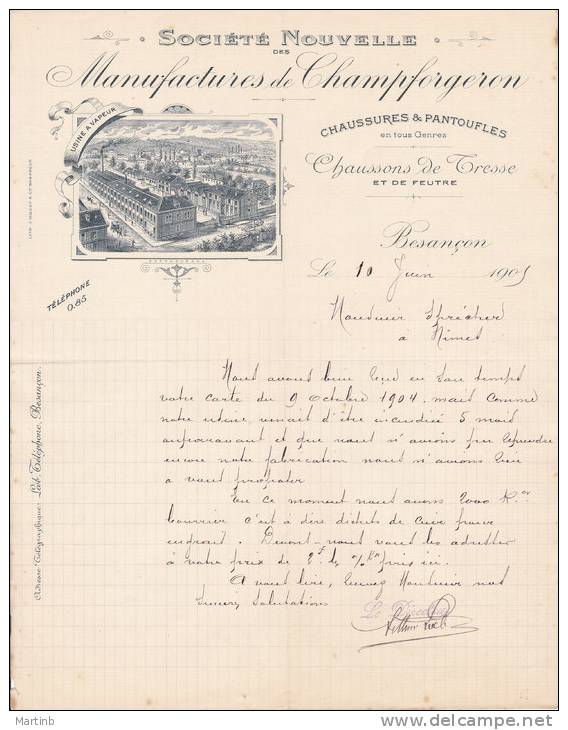 SOCIÉTÉ NOUVELLE
DES
Manufactures de Champforgeron
USINE A VAPEUR
CHAUSSURES & PANTOUFLES
en tous Genres
Chaussons de Tresse
ET DE FEUTRE
Besançon
Le 10 Juin 1905
TÉLÉPHONE
0.85
Adresse Télégraphique: Téléphone, Besançon.
Monsieur Sprécher
à Nimes
Nous avons bien reçu en son temps
votre carte du 9 Octobre 1904, mais comme
notre usine venait d'être incendiée 5 mois
auparavant et que nous n'avions pu reprendre
encore notre fabrication nous n'avions rien
à vous proposer
En ce moment nous avons 2000 Kos
c'est à dire déchets de cuir
Devons-nous vous les adresser
à votre prix de 2f les %Kos pris ici.
A vous lire, recevez Monsieur nos
sincères Salutations
Le Directeur
Martinb
www.delcampe.net